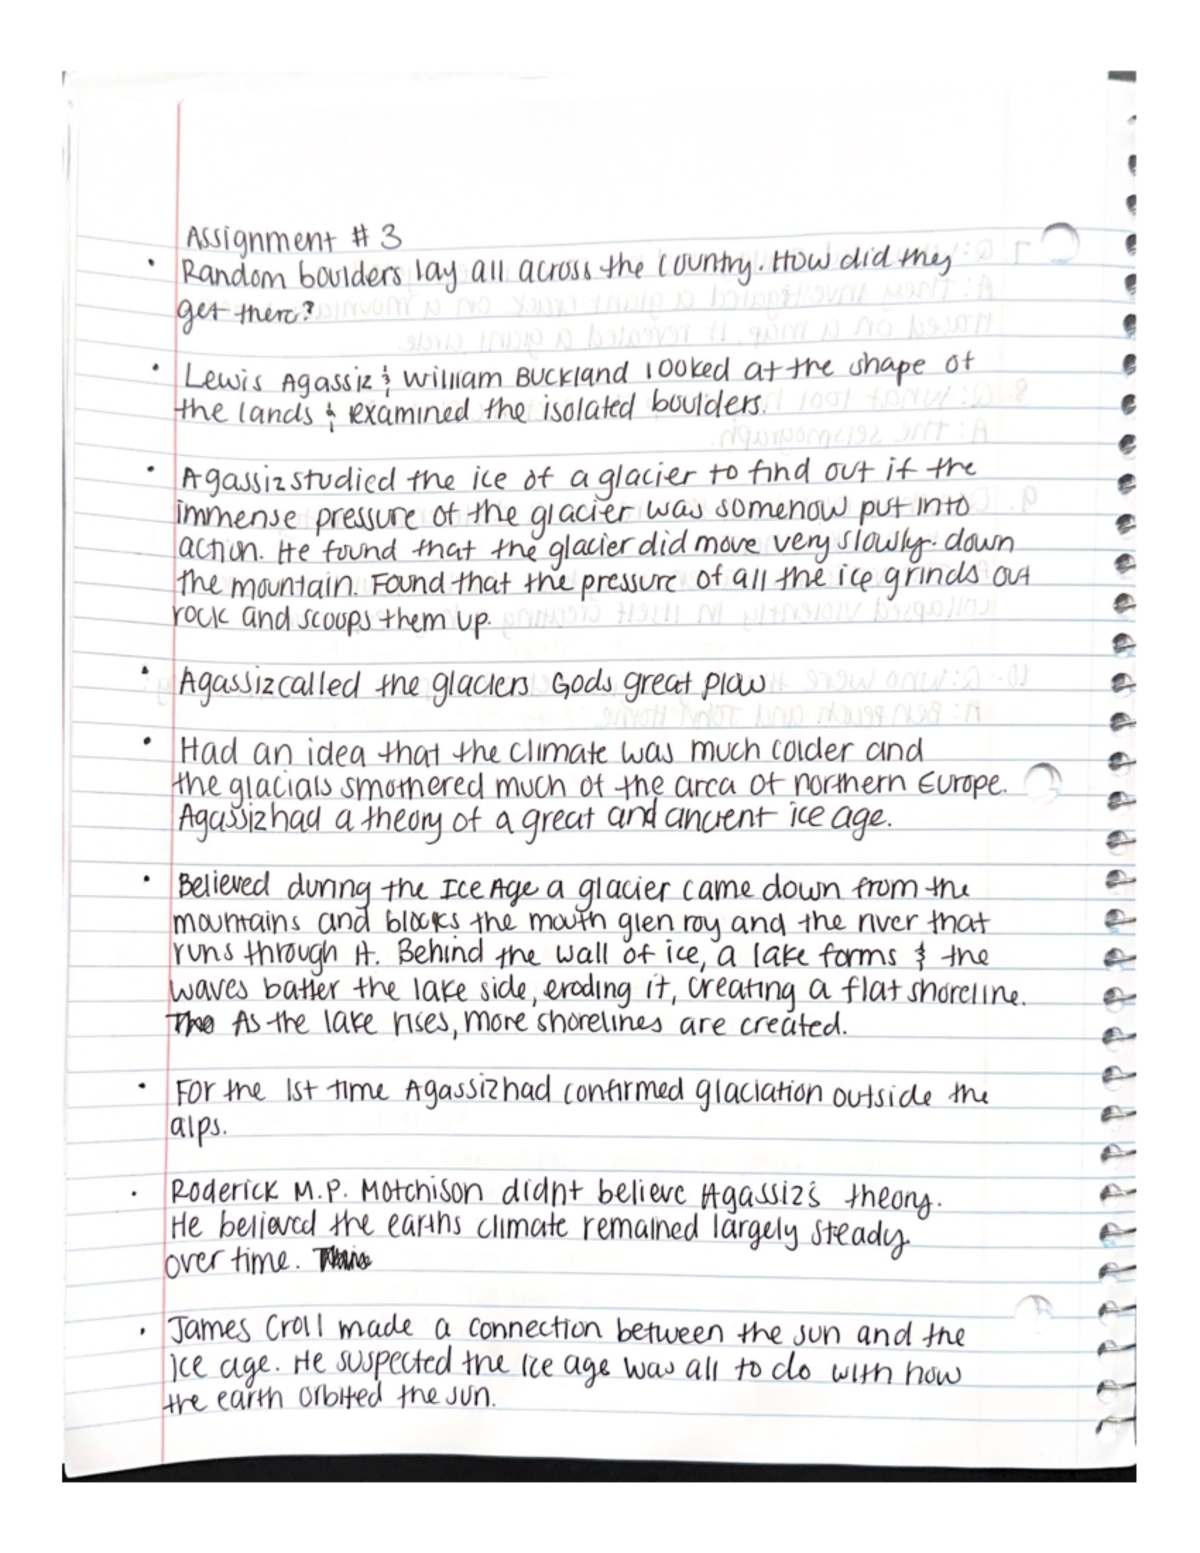 Assignment # 3
• Random boulders lay all across the country. How did they
get there?
• Lewis Agassiz & William Buckland looked at the shape of
the lands & examined the isolated boulders.
• Agassiz studied the ice of a glacier to find out if the
immense pressure of the glacier was somehow put into
action. He found that the glacier did move very slowly. down
the mountain. Found that the pressure of all the ice grinds out
rock and scoops them up.
• Agassiz called the glaciers Gods great plow
• Had an idea that the climate was much colder and
the glacials smothered much of the area of northern Europe.
Agassiz had a theory of a great and ancient ice age.
• Believed during the Ice Age a glacier came down from the
mountains and blocks the mouth glen roy and the river that
runs through it. Behind the wall of ice, a lake forms & the
waves batter the lake side, eroding it, creating a flat shoreline.
As the lake rises, more shorelines are created.
• For the 1st time Agassiz had confirmed glaciation outside the
alps.
• Roderick M.P. Motchison didnt believe Agassiz's theory.
He believed the earths climate remained largely steady
over time.
• James Croll made a connection between the sun and the
ice age. He suspected the Ice age was all to do with how
the earth orbited the sun.